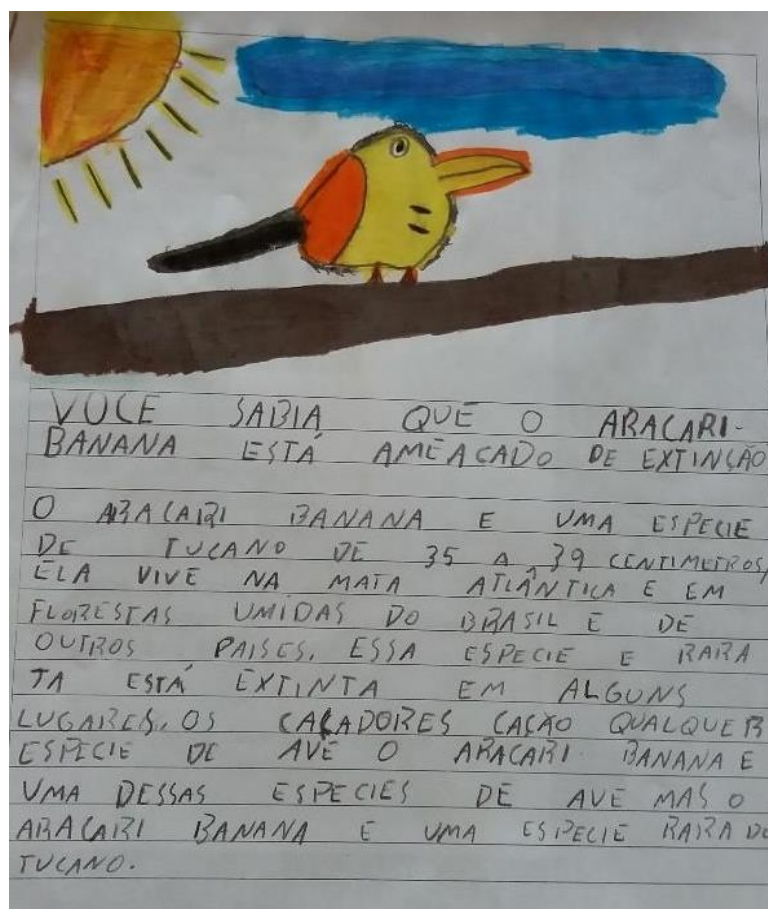 VOCE SABIA QUE O ARACARI-
BANANA ESTÁ AMEACADO DE EXTINSÃO
O ARACARI BANANA E UMA ESPECIE
DE TUCANO DE 35 A 39 CENTIMETROS,
ELA VIVE NA MATA ATLÂNTICA E EM
FLORESTAS UMIDAS DO BRASIL E DE
OUTROS PAISES. ESSA ESPECIE E RARA
TA ESTÁ EXTINTA EM ALGUNS
LUGARES. OS CACADORES CAÇÃO QUALQUER
ESPECIE DE AVE O ARACARI BANANA E
UMA DESSAS ESPECIES DE AVE MAS O
ARACARI BANANA E UMA ESPECIE RARA DE
TUCANO.